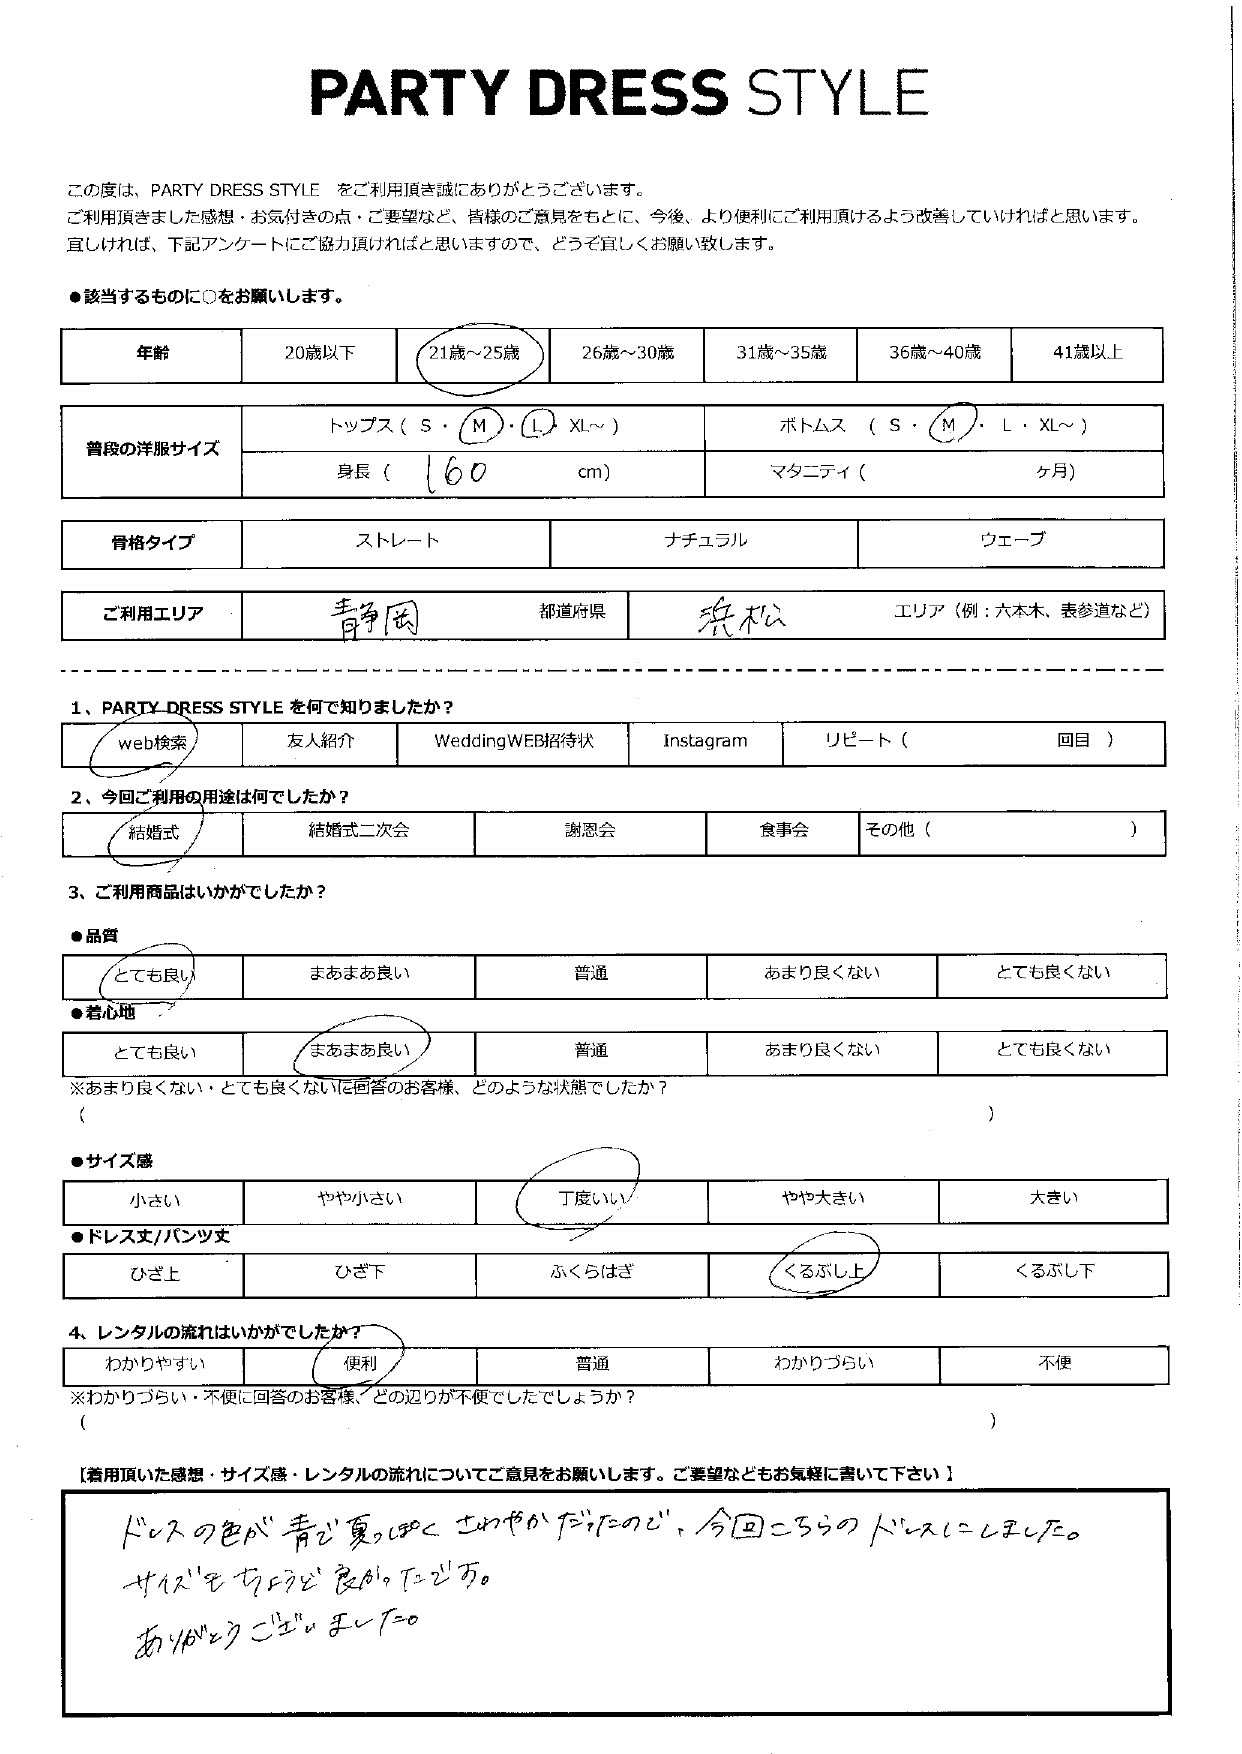 PARTY DRESS STYLE
この度は、PARTY DRESS STYLE をご利用頂き誠にありがとうございます。
ご利用頂きました感想・お気付きの点・ご要望など、皆様のご意見をもとに、今後、より便利にご利用頂けるよう改善していければと思います。
宜しければ、下記アンケートにご協力頂ければと思いますので、どうぞ宜しくお願い致します。
●該当するものに○をお願いします。
年齢 20歳以下 21歳～25歳 26歳～30歳 31歳～35歳 36歳～40歳 41歳以上
普段の洋服サイズ トップス ( S ・ M ・ L ・ XL～ ) ボトムス ( S ・ M ・ L ・ XL～ )
身長 ( 160 cm) マタニティ ( ヶ月)
骨格タイプ ストレート ナチュラル ウェーブ
ご利用エリア 静岡 都道府県 浜松 エリア（例：六本木、表参道など）
1、PARTY DRESS STYLE を何で知りましたか？
web検索 友人紹介 WeddingWEB招待状 Instagram リピート ( 回目 )
2、今回ご利用の用途は何でしたか？
結婚式 結婚式二次会 謝恩会 食事会 その他 ( )
3、ご利用商品はいかがでしたか？
●品質
とても良い まあまあ良い 普通 あまり良くない とても良くない
●着心地
とても良い まあまあ良い 普通 あまり良くない とても良くない
※あまり良くない・とても良くないに回答のお客様、どのような状態でしたか？
( )
●サイズ感
小さい やや小さい 丁度いい やや大きい 大きい
●ドレス丈/パンツ丈
ひざ上 ひざ下 ふくらはぎ くるぶし上 くるぶし下
4、レンタルの流れはいかがでしたか？
わかりやすい 便利 普通 わかりづらい 不便
※わかりづらい・不便に回答のお客様、どの辺りが不便でしたでしょうか？
( )
【着用頂いた感想・サイズ感・レンタルの流れについてご意見をお願いします。ご要望などもお気軽に書いて下さい】
ドレスの色が青で夏っぽくさわやかだったので、今回こちらのドレスにしました。
サイズもちょうど良かったです。
ありがとうございました。